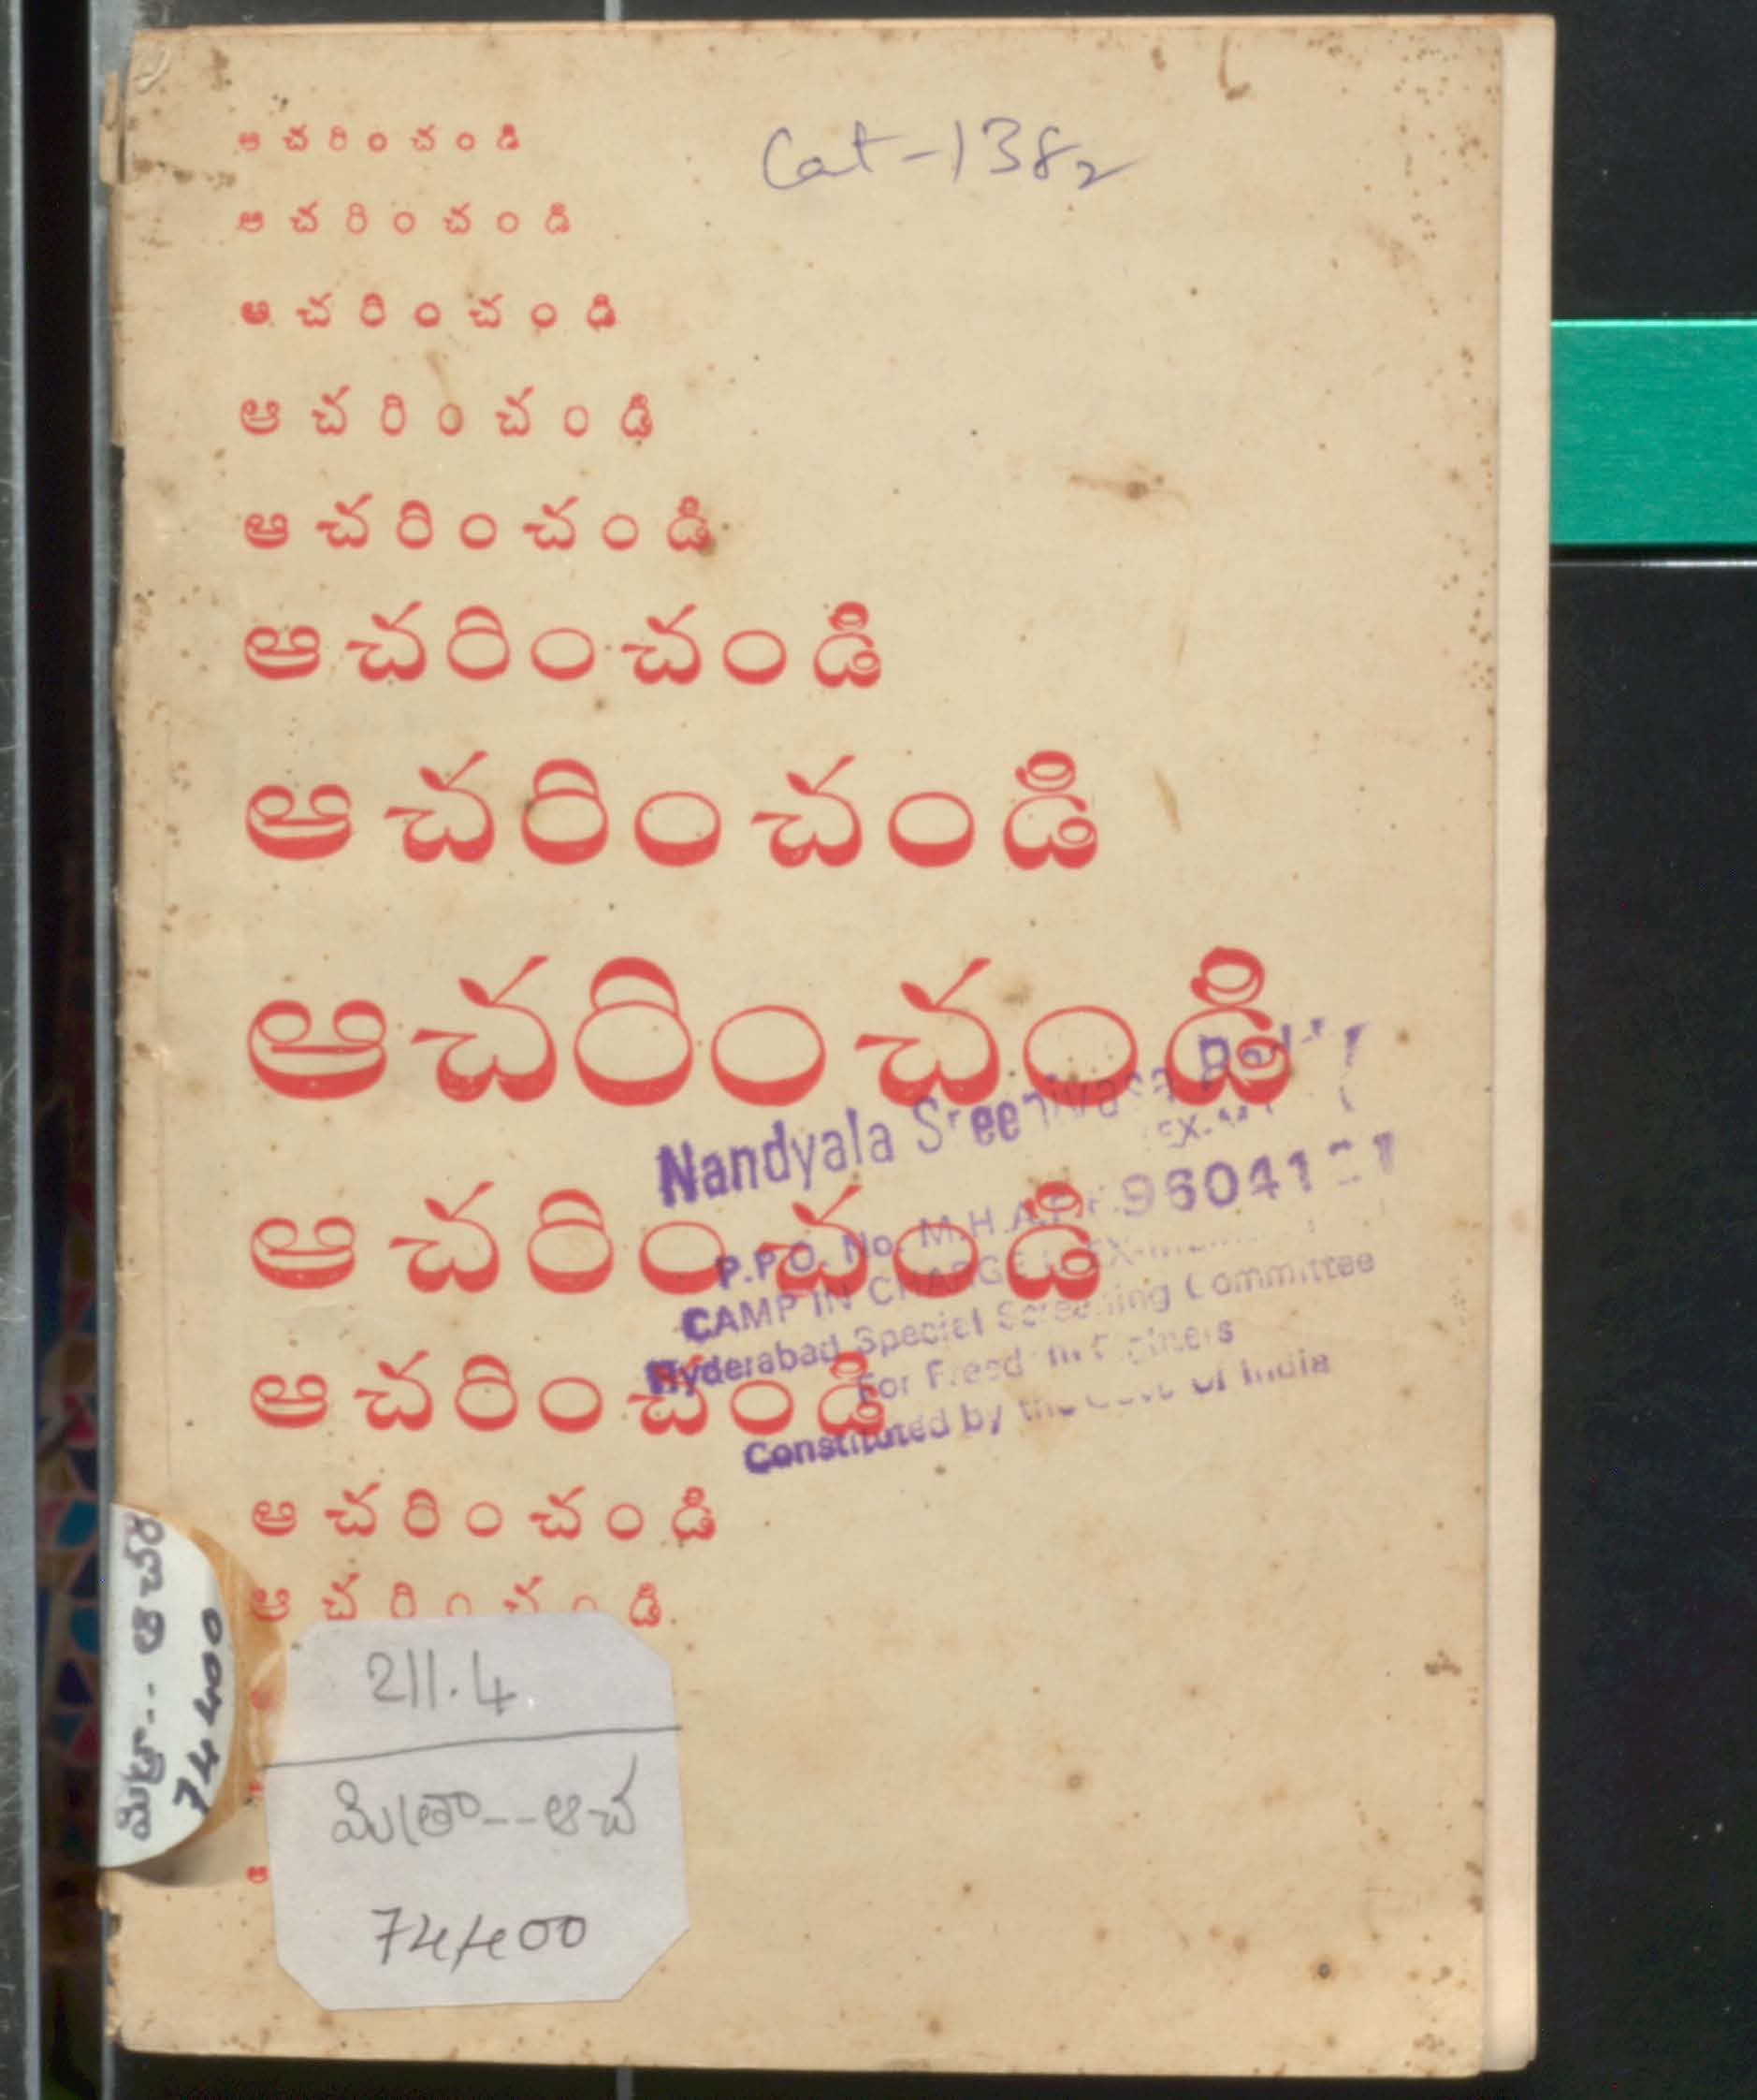 ఆచరించండి
Cat-1382
ఆచరించండి
ఆచరించండి
ఆచరించండి
ఆచరించండి
ఆచరించండి
ఆచరించండి
ఆచరించండి
Nandyala Sreenivasa Reddy
EX-
ఆచరించండి
P.P.O. No. M.H.A. 9604121
CAMP IN CHARGE
Hyderabad Special Screening Committee
ఆచరించండి
For Freedom Fighters
Constituted by the Govt of India
ఆచరించండి
ఆచరించండి
211.4
మిత్రా--ఆచ
74400
ఆ
మిత్రా-- ఆచరి
74400